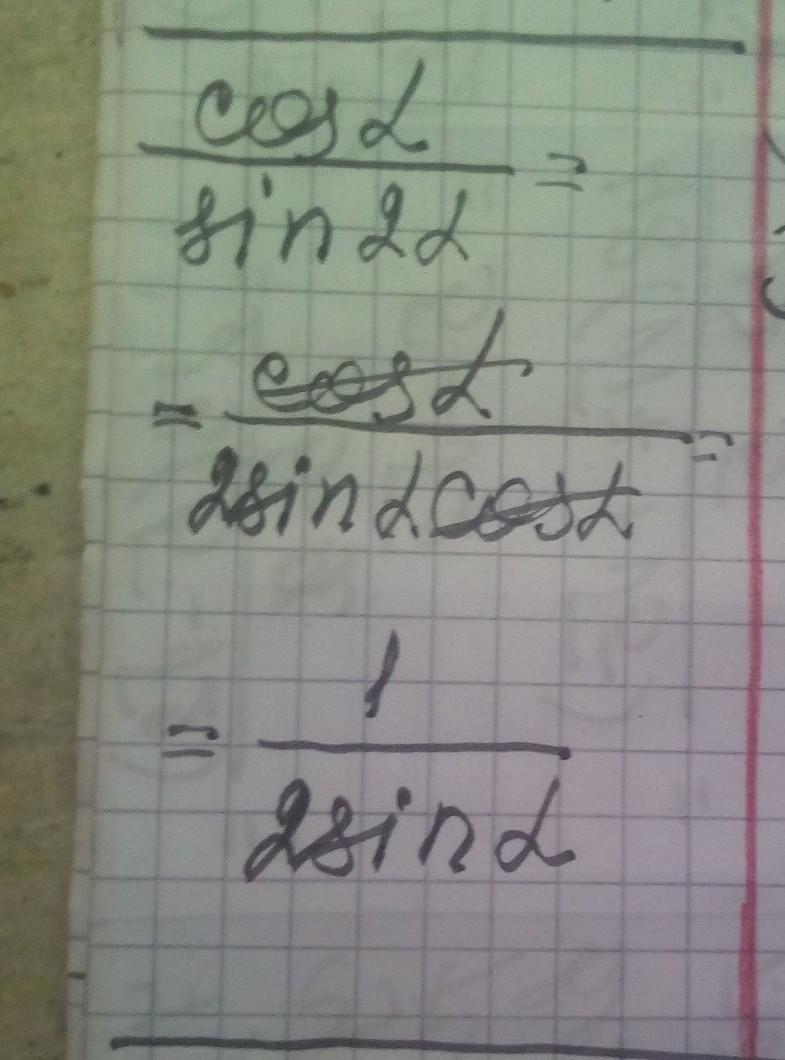 cos α
sin 2α =
= cos α
2 sin α cos α =
= 1
2 sin α